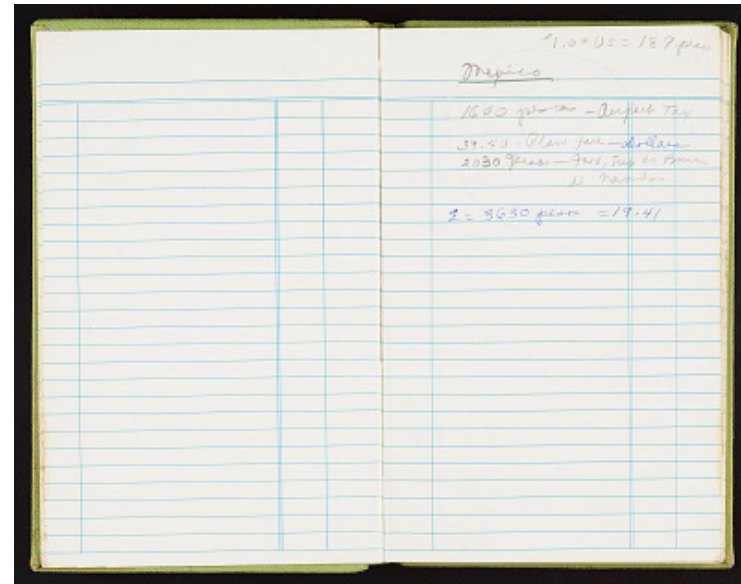 $1.00 US = 187 pesos
Mexico
1600 pesos - Airport Tax
39.40 - Plane fare - dollars
2030 pesos - Taxi, Trip to
& Mandas
Σ = 3630 pesos = 19.41